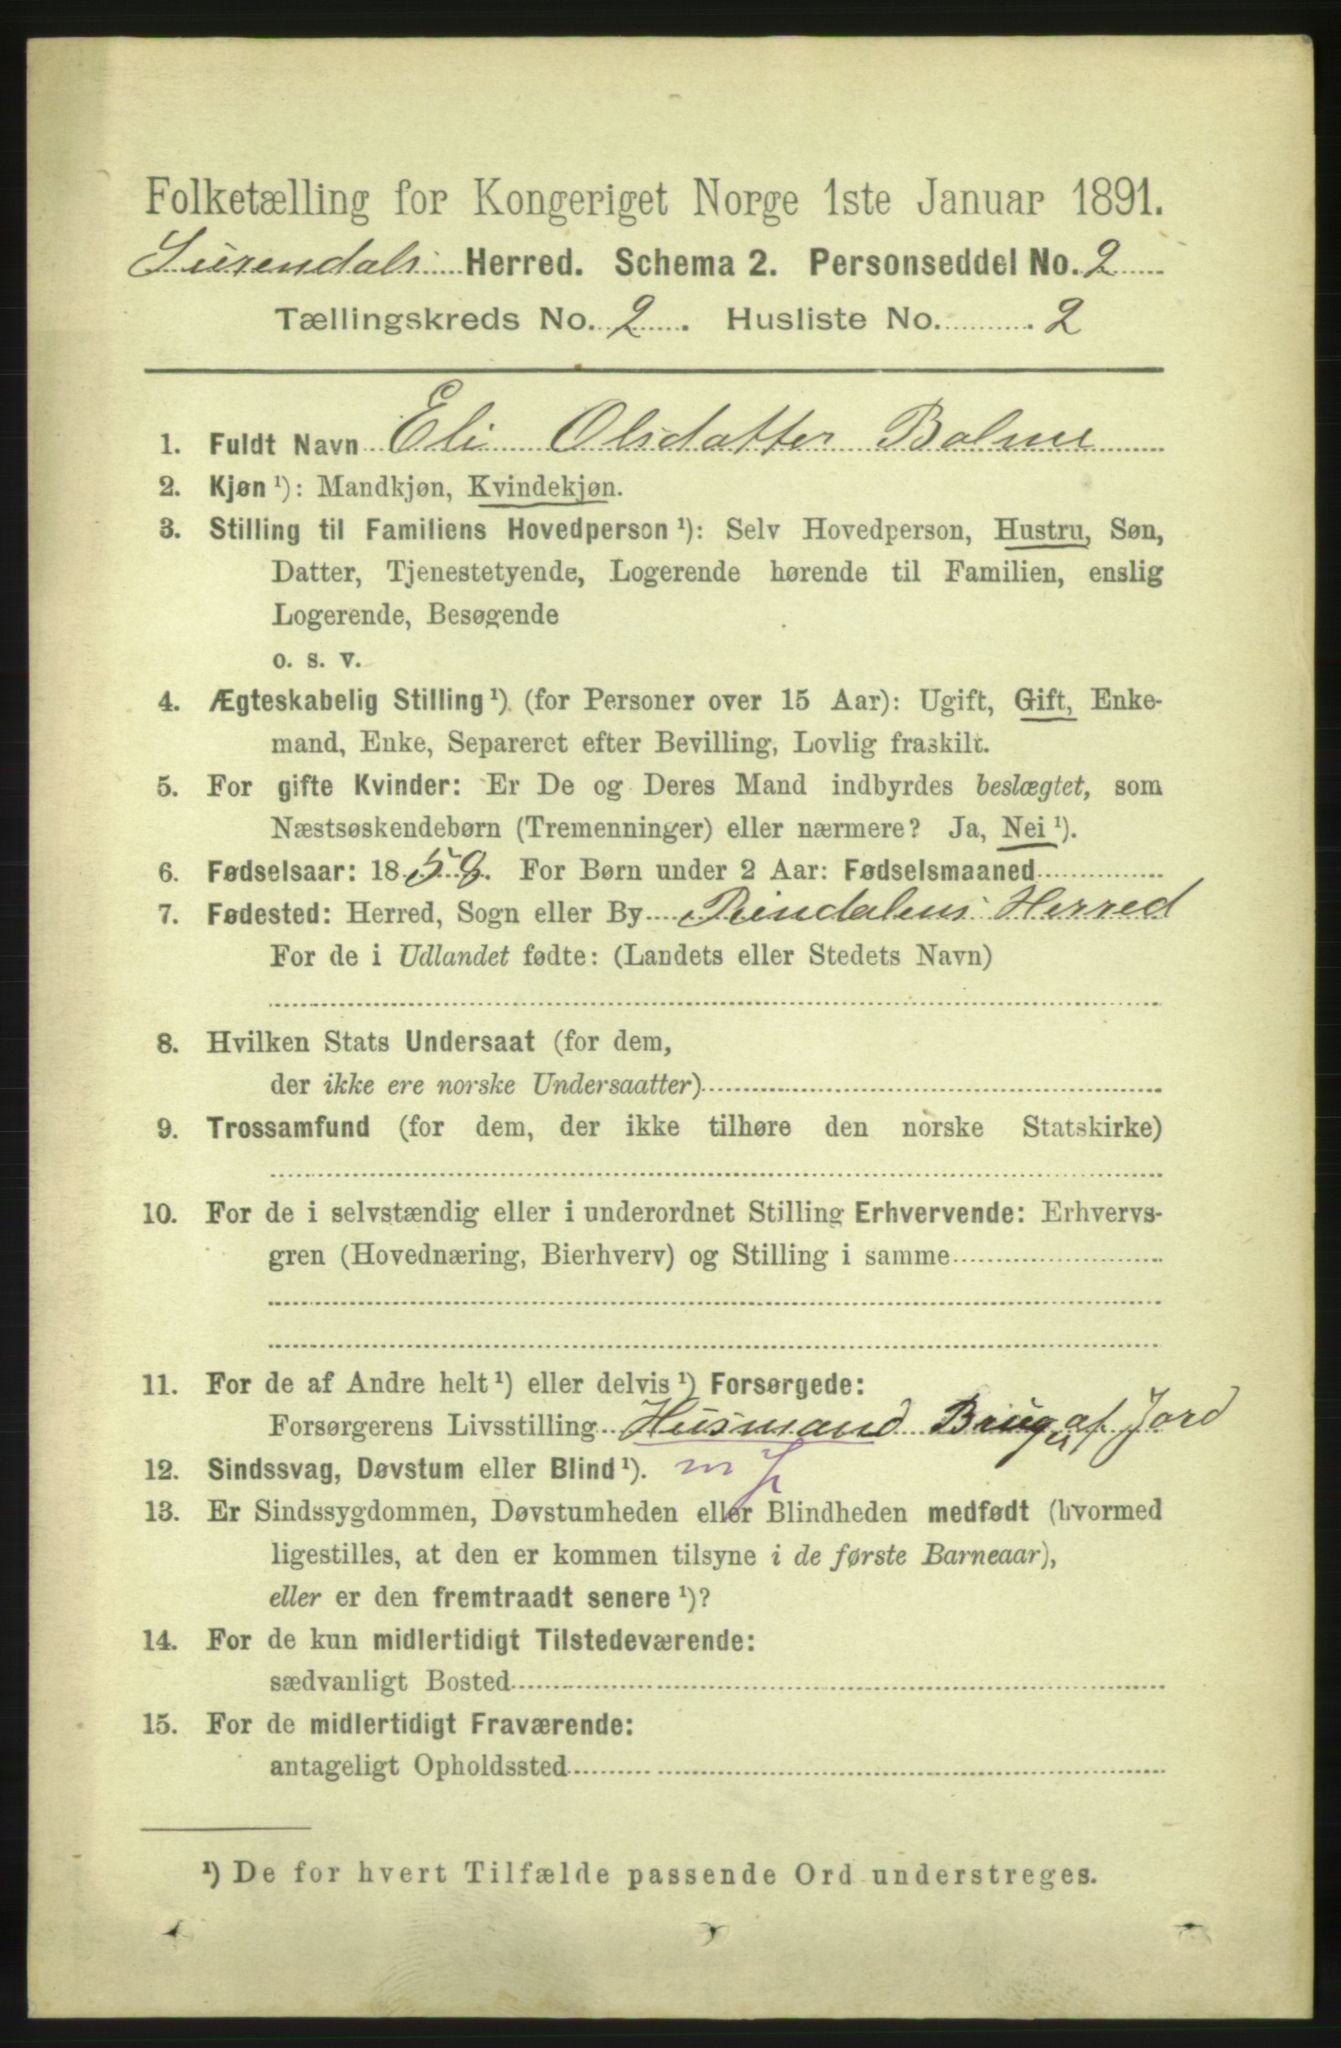 Folketælling for Kongeriget Norge 1ste Januar 1891.
Surendals Herred. Schema 2. Personseddel No. 2
Tællingskreds No. 2. Husliste No. 2
1. Fuldt Navn Eli Olsdatter Bolme
2. Kjøn ¹): Mandkjøn, Kvindekjøn.
3. Stilling til Familiens Hovedperson ¹): Selv Hovedperson, Hustru, Søn,
Datter, Tjenestetyende, Logerende hørende til Familien, enslig
Logerende, Besøgende
o. s. v.
4. Ægteskabelig Stilling ¹) (for Personer over 15 Aar): Ugift, Gift, Enke-
mand, Enke, Separeret efter Bevilling, Lovlig fraskilt.
5. For gifte Kvinder: Er De og Deres Mand indbyrdes beslægtet, som
Næstsøskendebørn (Tremenninger) eller nærmere? Ja, Nei ¹).
6. Fødselsaar: 18 58. For Børn under 2 Aar: Fødselsmaaned
7. Fødested: Herred, Sogn eller By Rindalens Herred
For de i Udlandet fødte: (Landets eller Stedets Navn)
8. Hvilken Stats Undersaat (for dem,
der ikke ere norske Undersaatter)
9. Trossamfund (for dem, der ikke tilhøre den norske Statskirke)
10. For de i selvstændig eller i underordnet Stilling Erhvervende: Erhvervs-
gren (Hovednæring, Bierhverv) og Stilling i samme
11. For de af Andre helt ¹) eller delvis ¹) Forsørgede:
Forsørgerens Livsstilling Husmand Bruger af Jord
12. Sindssvag, Døvstum eller Blind ¹). m J
13. Er Sindssygdommen, Døvstumheden eller Blindheden medfødt (hvormed
ligestilles, at den er kommen tilsyne i de første Barneaar),
eller er den fremtraadt senere ¹)?
14. For de kun midlertidigt Tilstedeværende:
sædvanligt Bosted
15. For de midlertidigt Fraværende:
antageligt Opholdssted
¹) De for hvert Tilfælde passende Ord understreges.